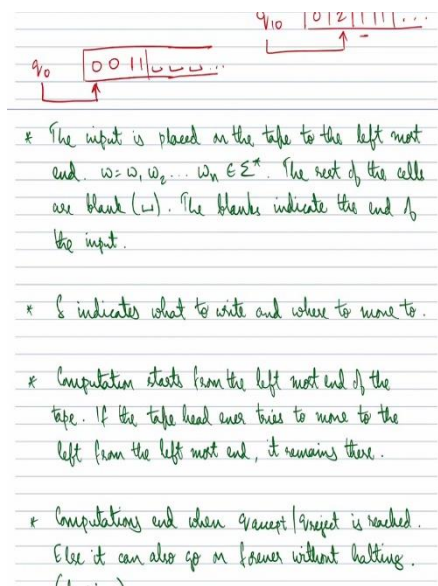 q10 0 1 2 1 1 1 1 ...
q0 0 0 1 1 ⊔ ⊔ ⊔ ...
* The input is placed on the tape to the left most
end. ω = ω1 ω2 ... ωn ∈ Σ*. The rest of the cells
are blank (⊔). The blanks indicate the end of
the input.
* δ indicates what to write and where to move to.
* Computation starts from the left most end of the
tape. If the tape head ever tries to move to the
left from the left most end, it remains there.
* Computations end when qaccept | qreject is reached.
Else it can also go on forever without halting.